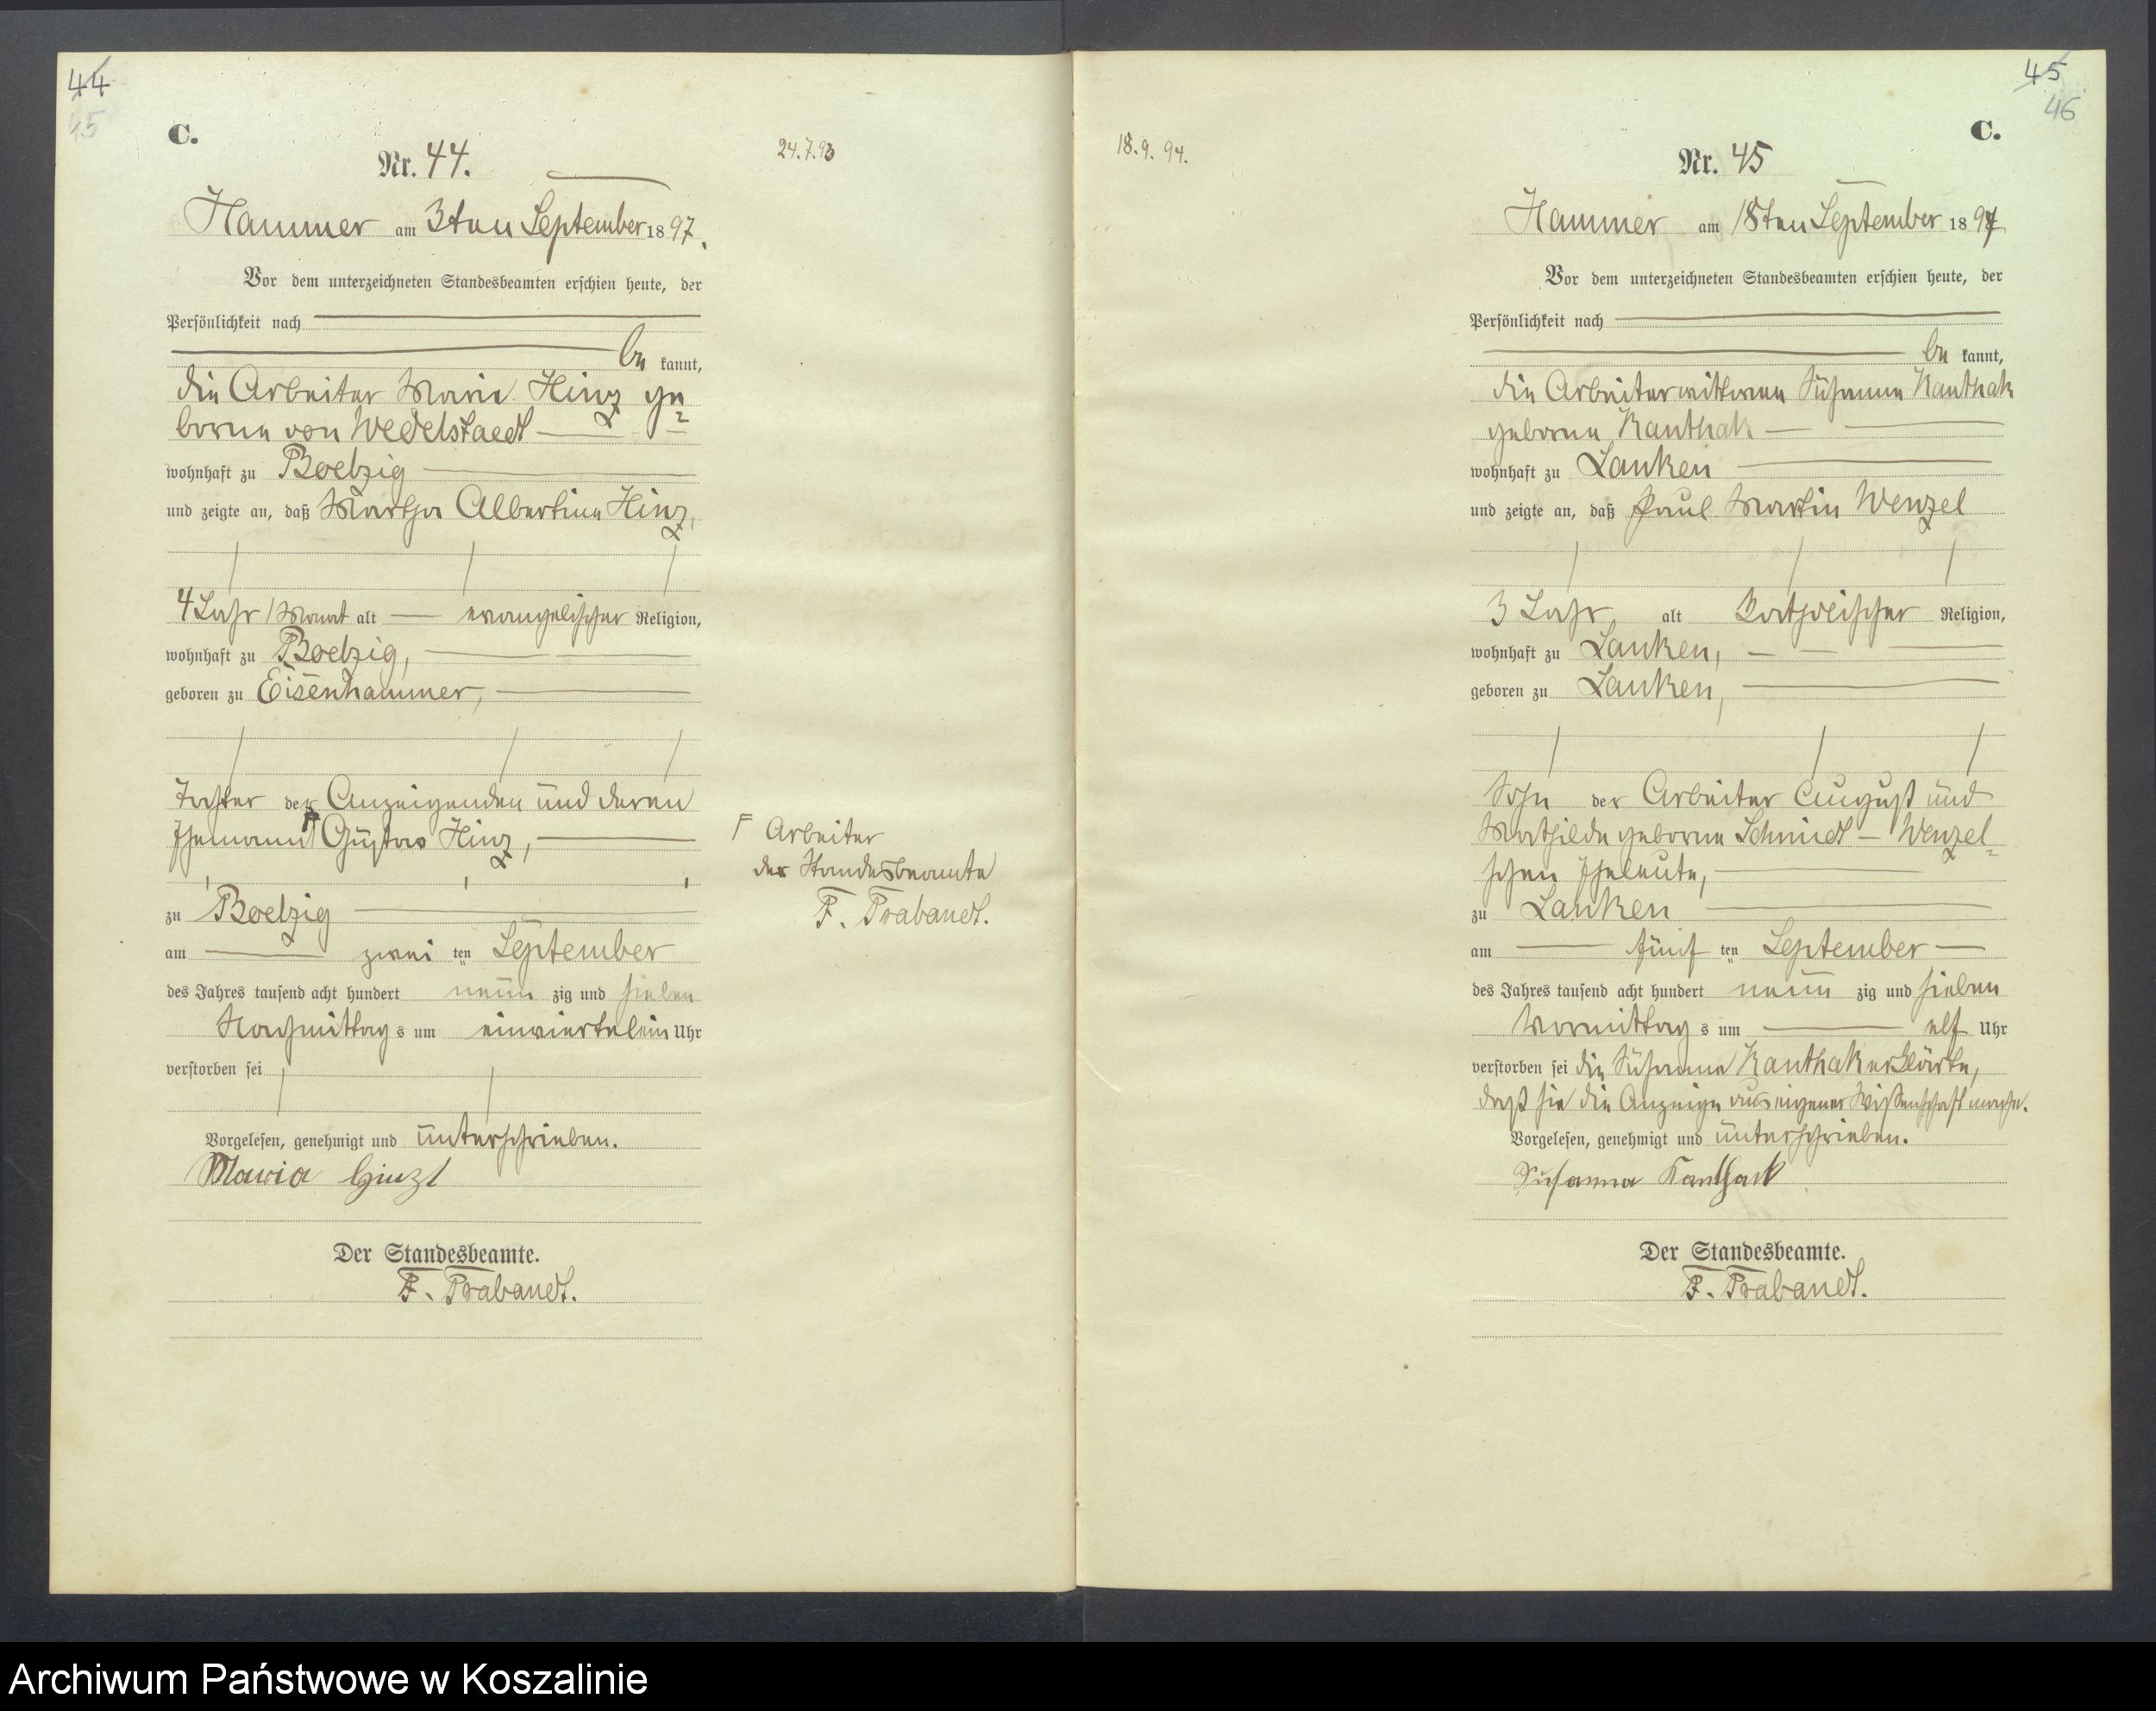 44
45
C.
Nr. 44.
24.7.93
Hammer am 3ten September 1897.
Vor dem unterzeichneten Standesbeamten erschien heute, der
Persönlichkeit nach
be kannt,
die Arbeiter Marie Hinz ge
borene von Wedelstaedt
wohnhaft zu Boelzig
und zeigte an, daß Martha Albertine Hinz,
4 Jahr 1 Monat alt evangelischer Religion,
wohnhaft zu Boelzig,
geboren zu Eisenhammer,
Tochter der Anzeigenden und deren
Ehemann Gustav Hinz,
zu Boelzig
am zwei ten September
des Jahres tausend acht hundert neun zig und sieben
Nachmittag s um einviertelein Uhr
verstorben sei
Vorgelesen, genehmigt und unterschrieben.
Maria Hinz
Der Standesbeamte.
F. Prabandt.
F Arbeiter
der Standesbeamte
F. Prabandt.
45
46
C.
18.9.94.
Nr. 45
Hammer am 18ten September 1897
Vor dem unterzeichneten Standesbeamten erschien heute, der
Persönlichkeit nach
be kannt,
die Arbeiterwittwe Susanna Kanthak
geborene Kanthak
wohnhaft zu Lanken
und zeigte an, daß Paul Martin Wenzel
3 Jahr, alt katholischer Religion,
wohnhaft zu Lanken,
geboren zu Lanken,
Sohn der Arbeiter August und
Mathilde geborene Schmidt – Wenzel-
schen Eheleute,
zu Lanken
am fünf ten September
des Jahres tausend acht hundert neun zig und sieben
Vormittag s um elf Uhr
verstorben sei die Susanna Kanthak erklärte,
daß sie die Anzeige aus eigener Wissenschaft mache.
Vorgelesen, genehmigt und unterschrieben.
Susanna Kanthack
Der Standesbeamte.
F. Prabandt.
Archiwum Państwowe w Koszalinie